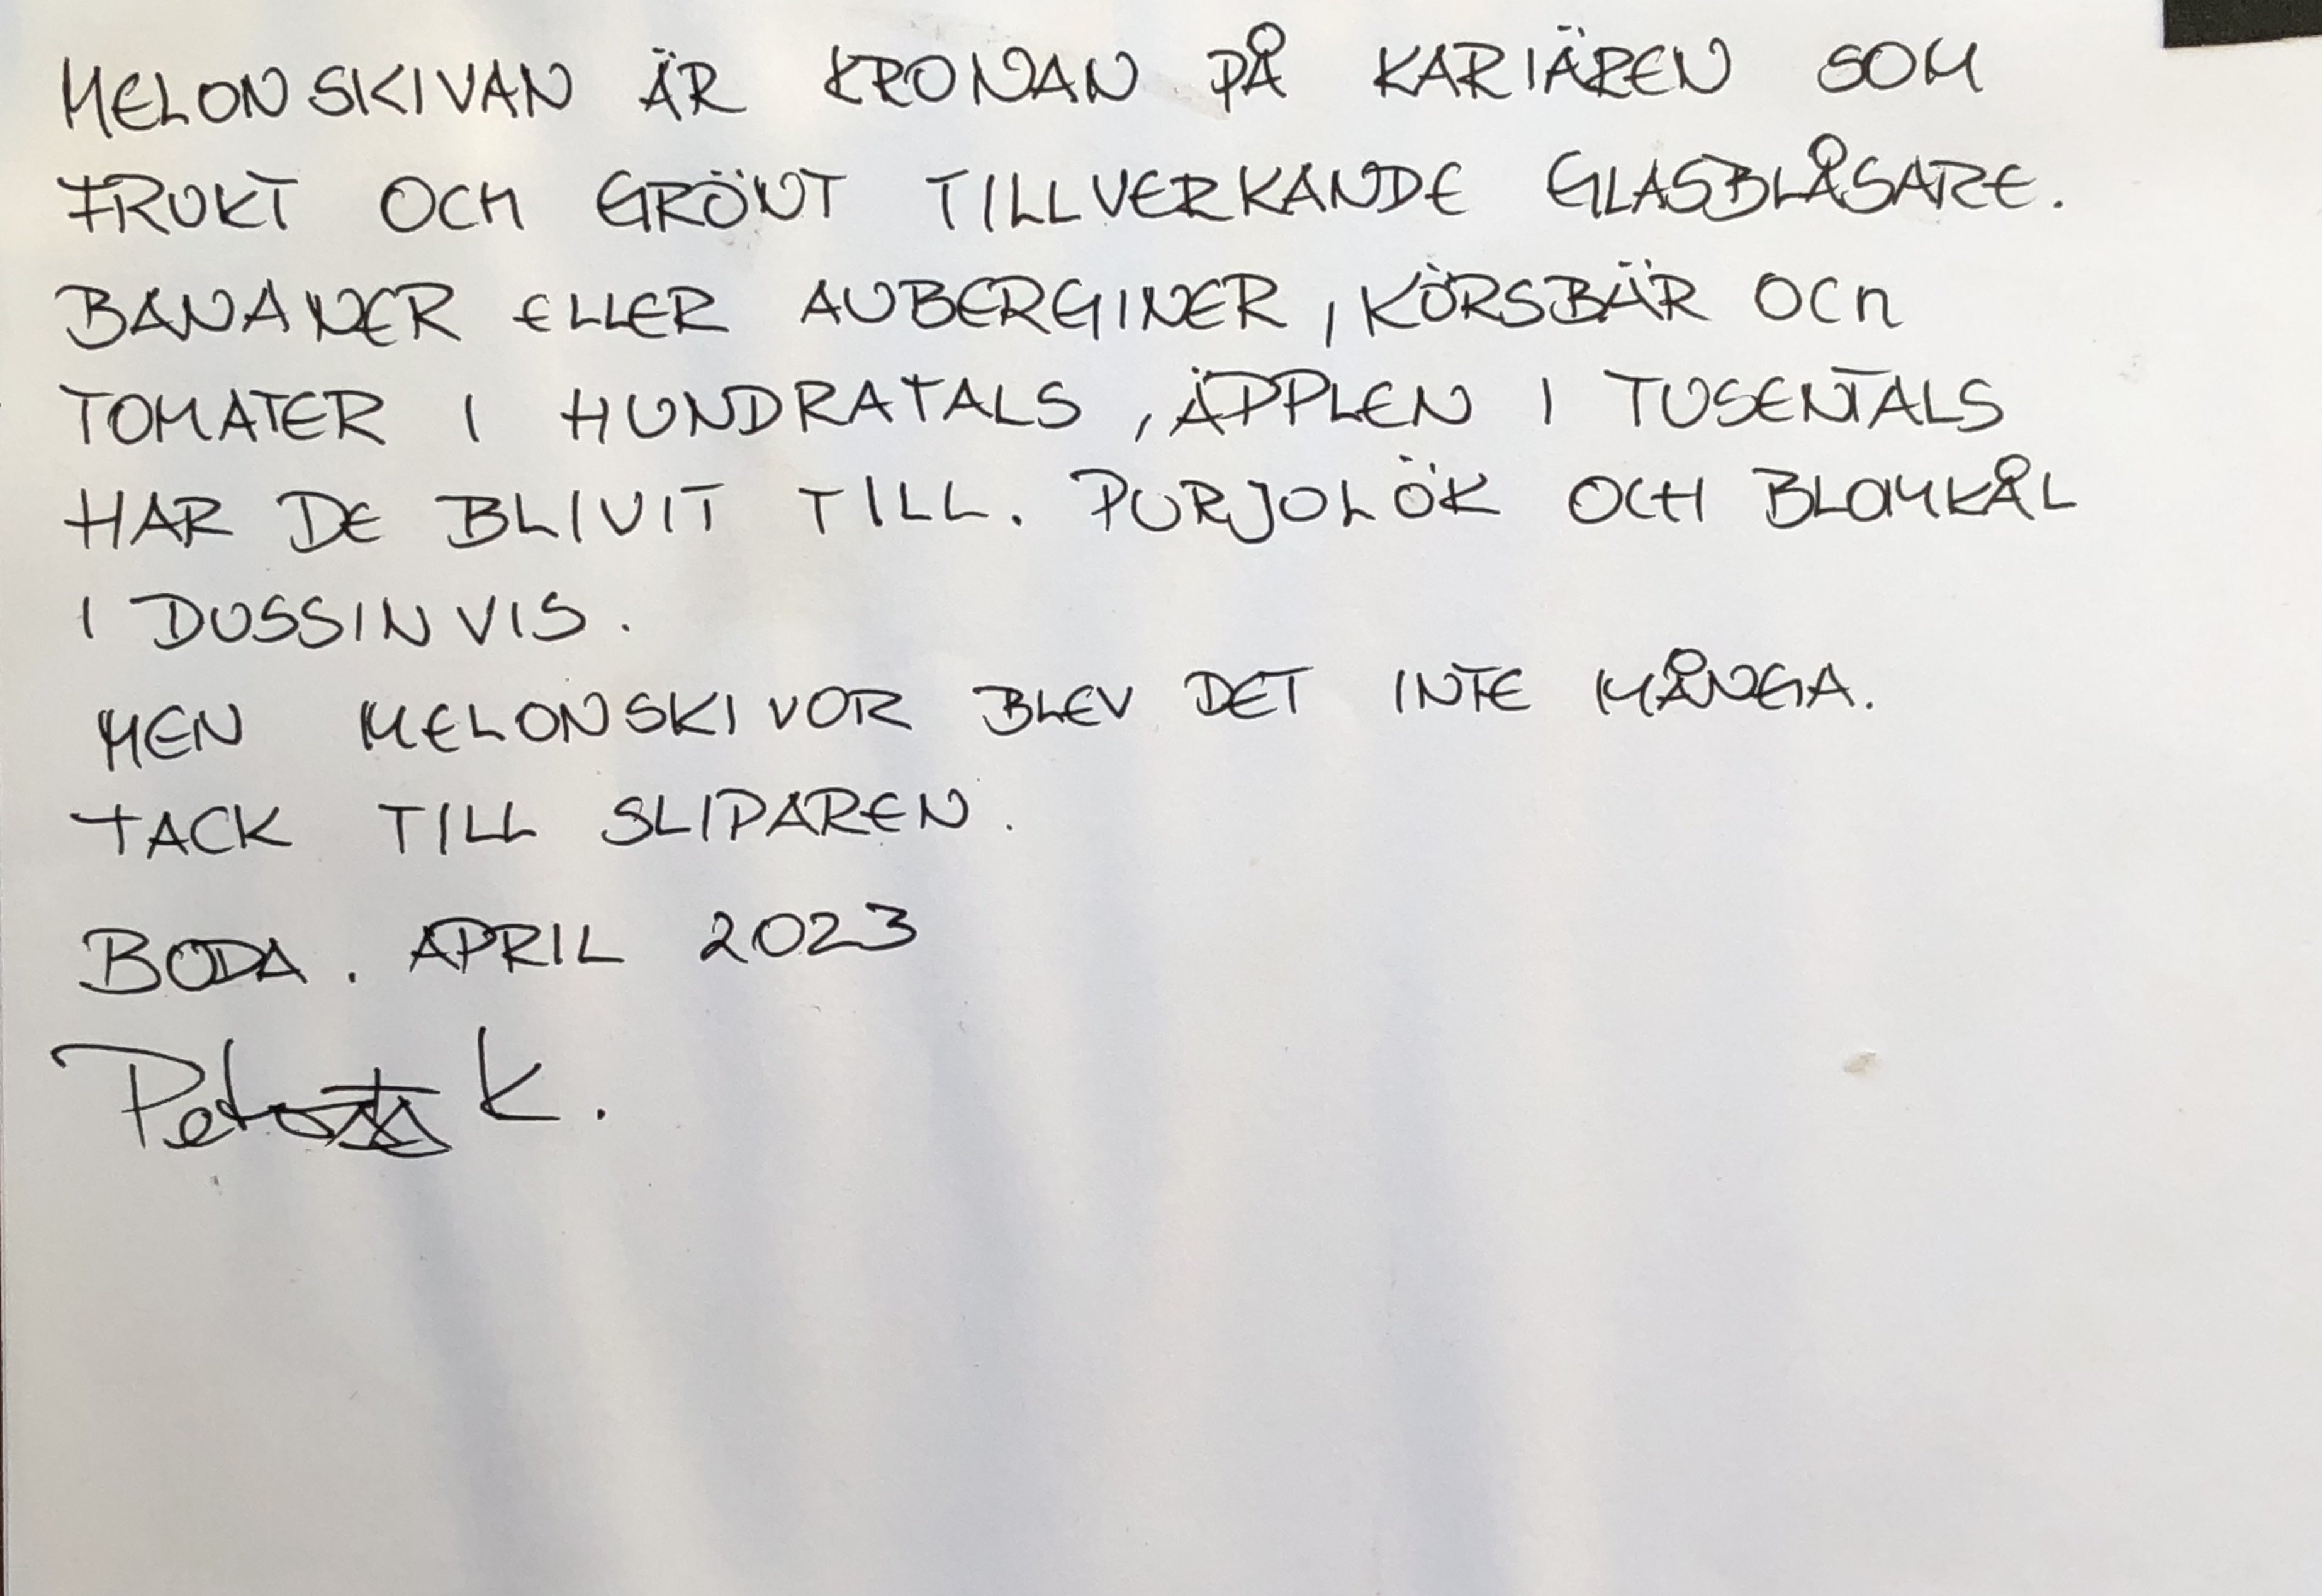 MELONSKIVAN ÄR KRONAN PÅ KARIÄREN SOM
FRUKT OCH GRÖNT TILLVERKANDE GLASBLÅSARE.
BANANER ELLER AUBERGINER, KÖRSBÄR OCH
TOMATER I HUNDRATALS, ÄPPLEN I TUSENTALS
HAR DE BLIVIT TILL. PURJOLÖK OCH BLOMKÅL
I DUSSINVIS.
MEN MELONSKIVOR BLEV DET INTE MÅNGA.
TACK TILL SLIPAREN.
BODA. APRIL 2023
K.